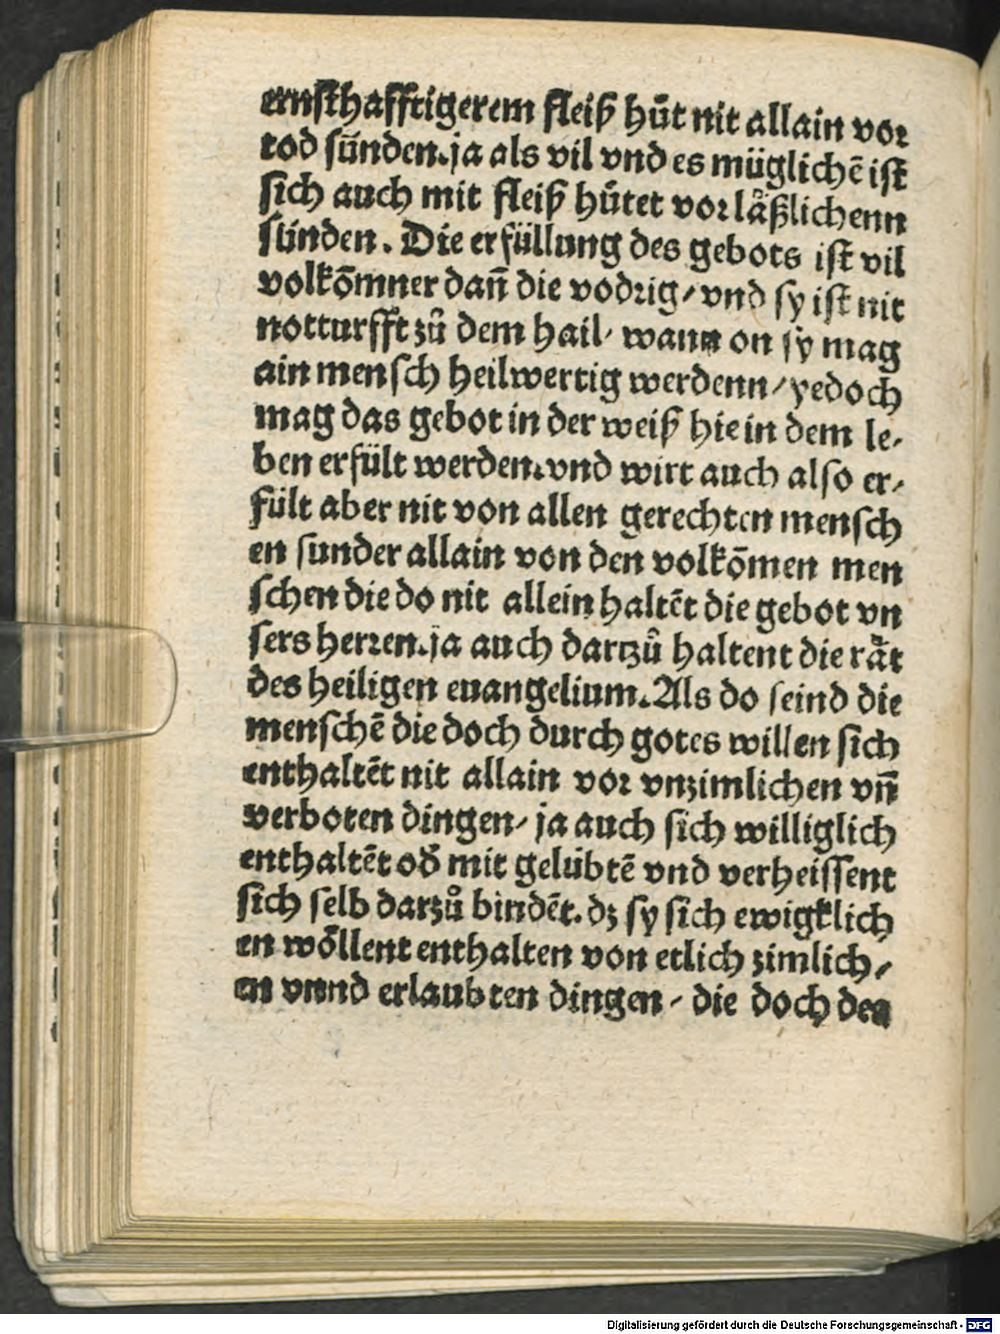 ernsthafftigerem fleiß hu̇t nit allain vor
tod sünden. ja als vil vnd es müglichē ist
sich auch mit fleiß hu̇tet vor läßlichenn
sünden. Die erfüllung des gebots ist vil
volkōmner dañ die vodrig / vnd sy ist nit
notturfft zů dem hail / wann on sy mag
ain mensch heilwertig werdenn / yedoch
mag das gebot in der weiß hie in dem le-
ben erfült werden. vnd wirt auch also er-
fült aber nit von allen gerechten mensch
en sunder allain von den volkōmen men
schen die do nit allein haltēt die gebot vn
sers herren. ja auch dartzů haltent die rät
des heiligen euangelium. Als do seind die
menschē die doch durch gotes willen sich
enthaltēt nit allain vor vnzimlichen vñ
verboten dingen / ja auch sich williglich
enthaltēt oď mit gelübtē vnd verheissent
sich selb darzů bindēt. dz sy sich ewigklich
en wöllent enthalten von etlich zimlich-
en vnnd erlaubten dingen / die doch den
Digitalisierung gefördert durch die Deutsche Forschungsgemeinschaft - DFG